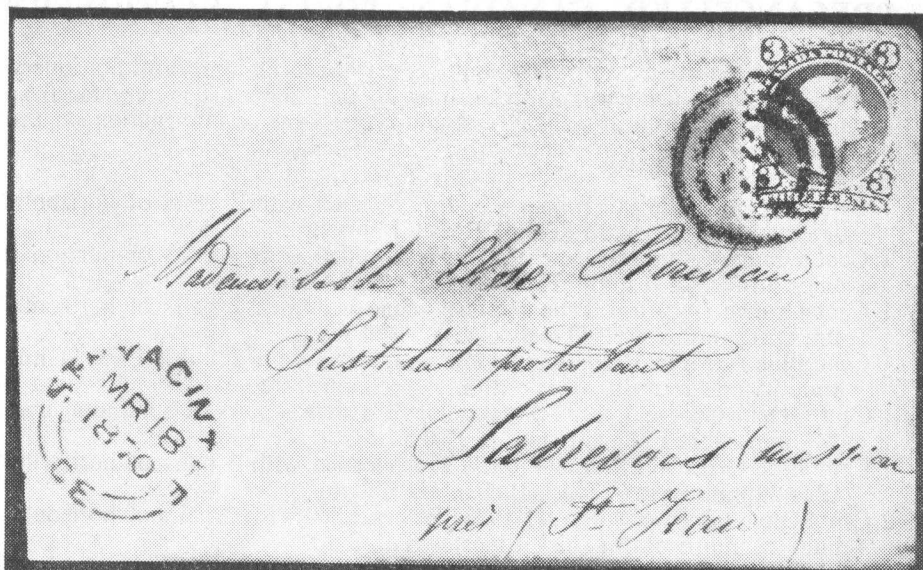 3 3
CANADA POSTAGE
3 3
THREE CENTS
Mademoiselle Elise
Institut protestant
Sabrevois (mission
près (St Jean)
ST. HYACINTHE
MR 18
18 70
C.E